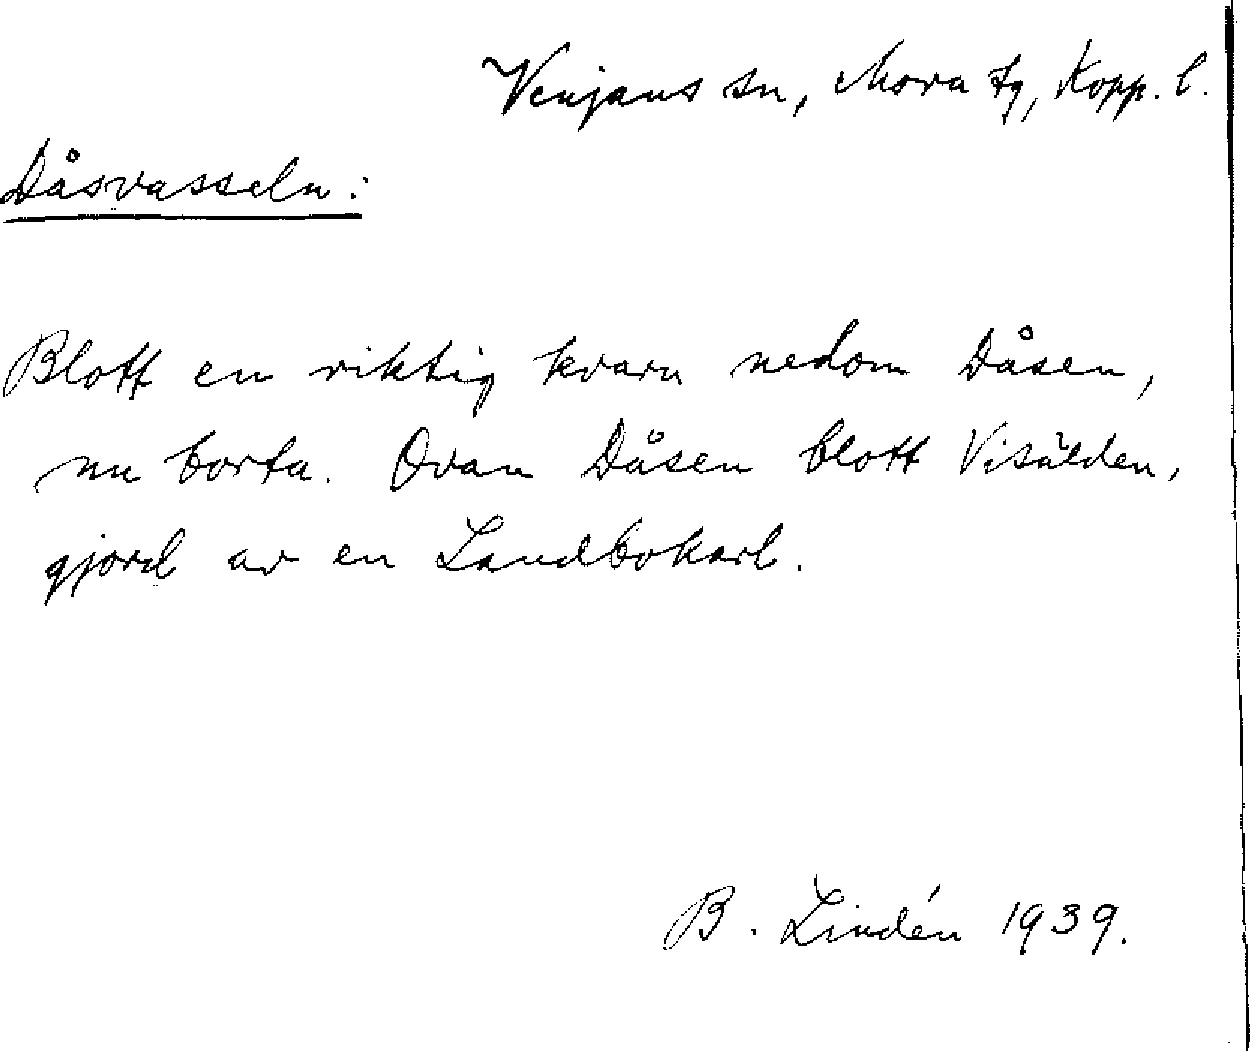 Venjans sn, Mora tg, Kopp. l.
Dåsvasseln:
Blott en riktig kvarn nedom Dåsen,
nu borta. Ovan Dåsen blott Visälden,
gjord av en Landbokarl.
B. Lindén 1939.